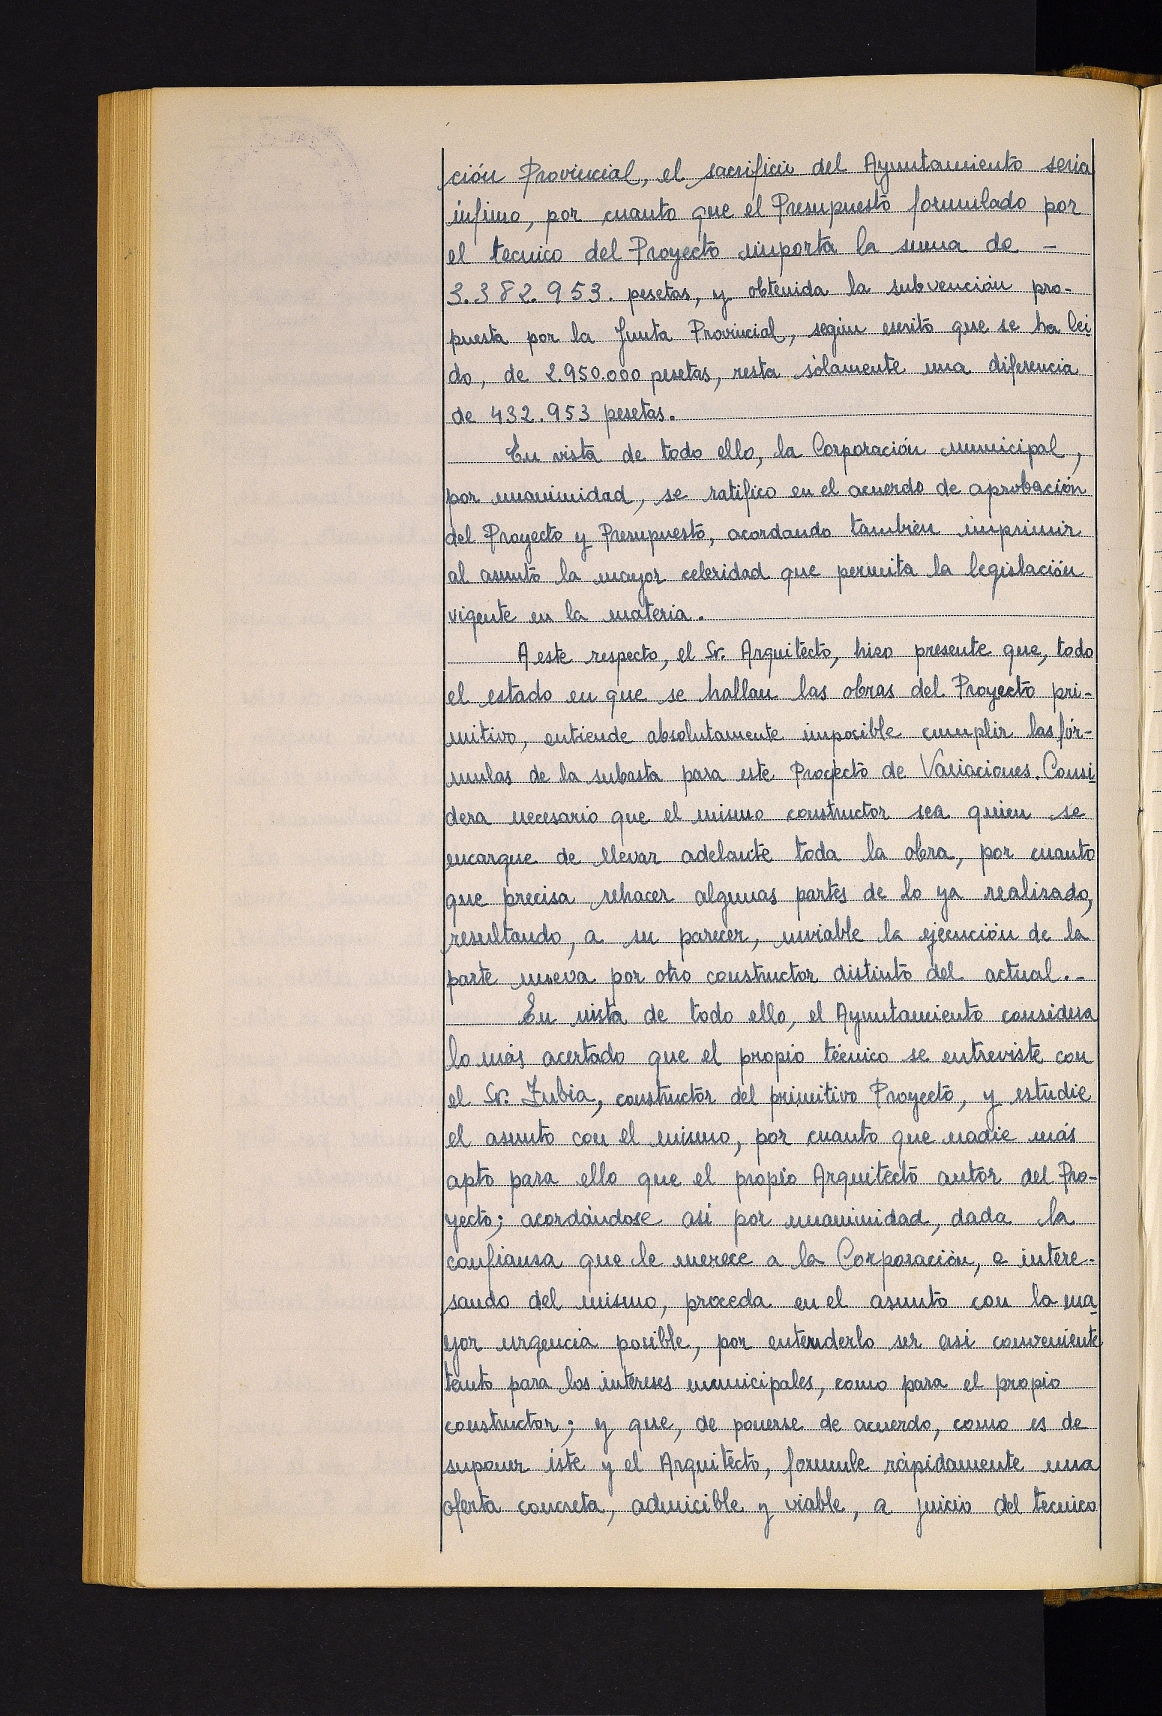 ción Provincial, el sacrificio del Ayuntamiento sería
ínfimo, por cuanto que el Presupuesto formulado por
el tecnico del Proyecto importa la suma de -
3.382.953. pesetas, y obtenida la subvención pro-
puesta por la Junta Provincial, según escrito que se ha lei
do, de 2.950.000 pesetas, resta sólamente una diferencia
de 432.953 pesetas.
En vista de todo ello, la Corporación municipal,
por unanimidad, se ratifico en el acuerdo de aprobación
del Proyecto y Presupuesto, acordando tambien imprimir
al asunto la mayor celeridad que permita la legislación
vigente en la materia.
A este respecto, el Sr. Arquitecto, hizo presente que, todo
el estado en que se hallan las obras del Proyecto pri-
mitivo, entiende absolutamente imposible cumplir las fór-
mulas de la subasta para este Proyecto de Variaciones. Consi
dera necesario que el mismo constructor sea quien se
encargue de llevar adelante toda la obra, por cuanto
que precisa rehacer algunas partes de lo ya realizado,
resultando, a su parecer, inviable la ejecución de la
parte nueva por otro constructor distinto del actual.-
En vista de todo ello, el Ayuntamiento considera
lo más acertado que el propio técnico se entreviste con
el Sr. Zubia, constructor del primitivo Proyecto, y estudie
el asunto con el mismo, por cuanto que nadie más
apto para ello que el propio Arquitecto autor del Pro-
yecto; acordándose así por unanimidad, dada la
confianza que le merece a la Corporación, e intere-
sando del mismo, proceda en el asunto con la ma
yor urgencia posible, por entenderlo ser asi conveniente
tanto para los intereses municipales, como para el propio
constructor; y que, de ponerse de acuerdo, como es de
suponer éste y el Arquitecto, formule rápidamente una
oferta concreta, admicible y viable, a juicio del tecnico